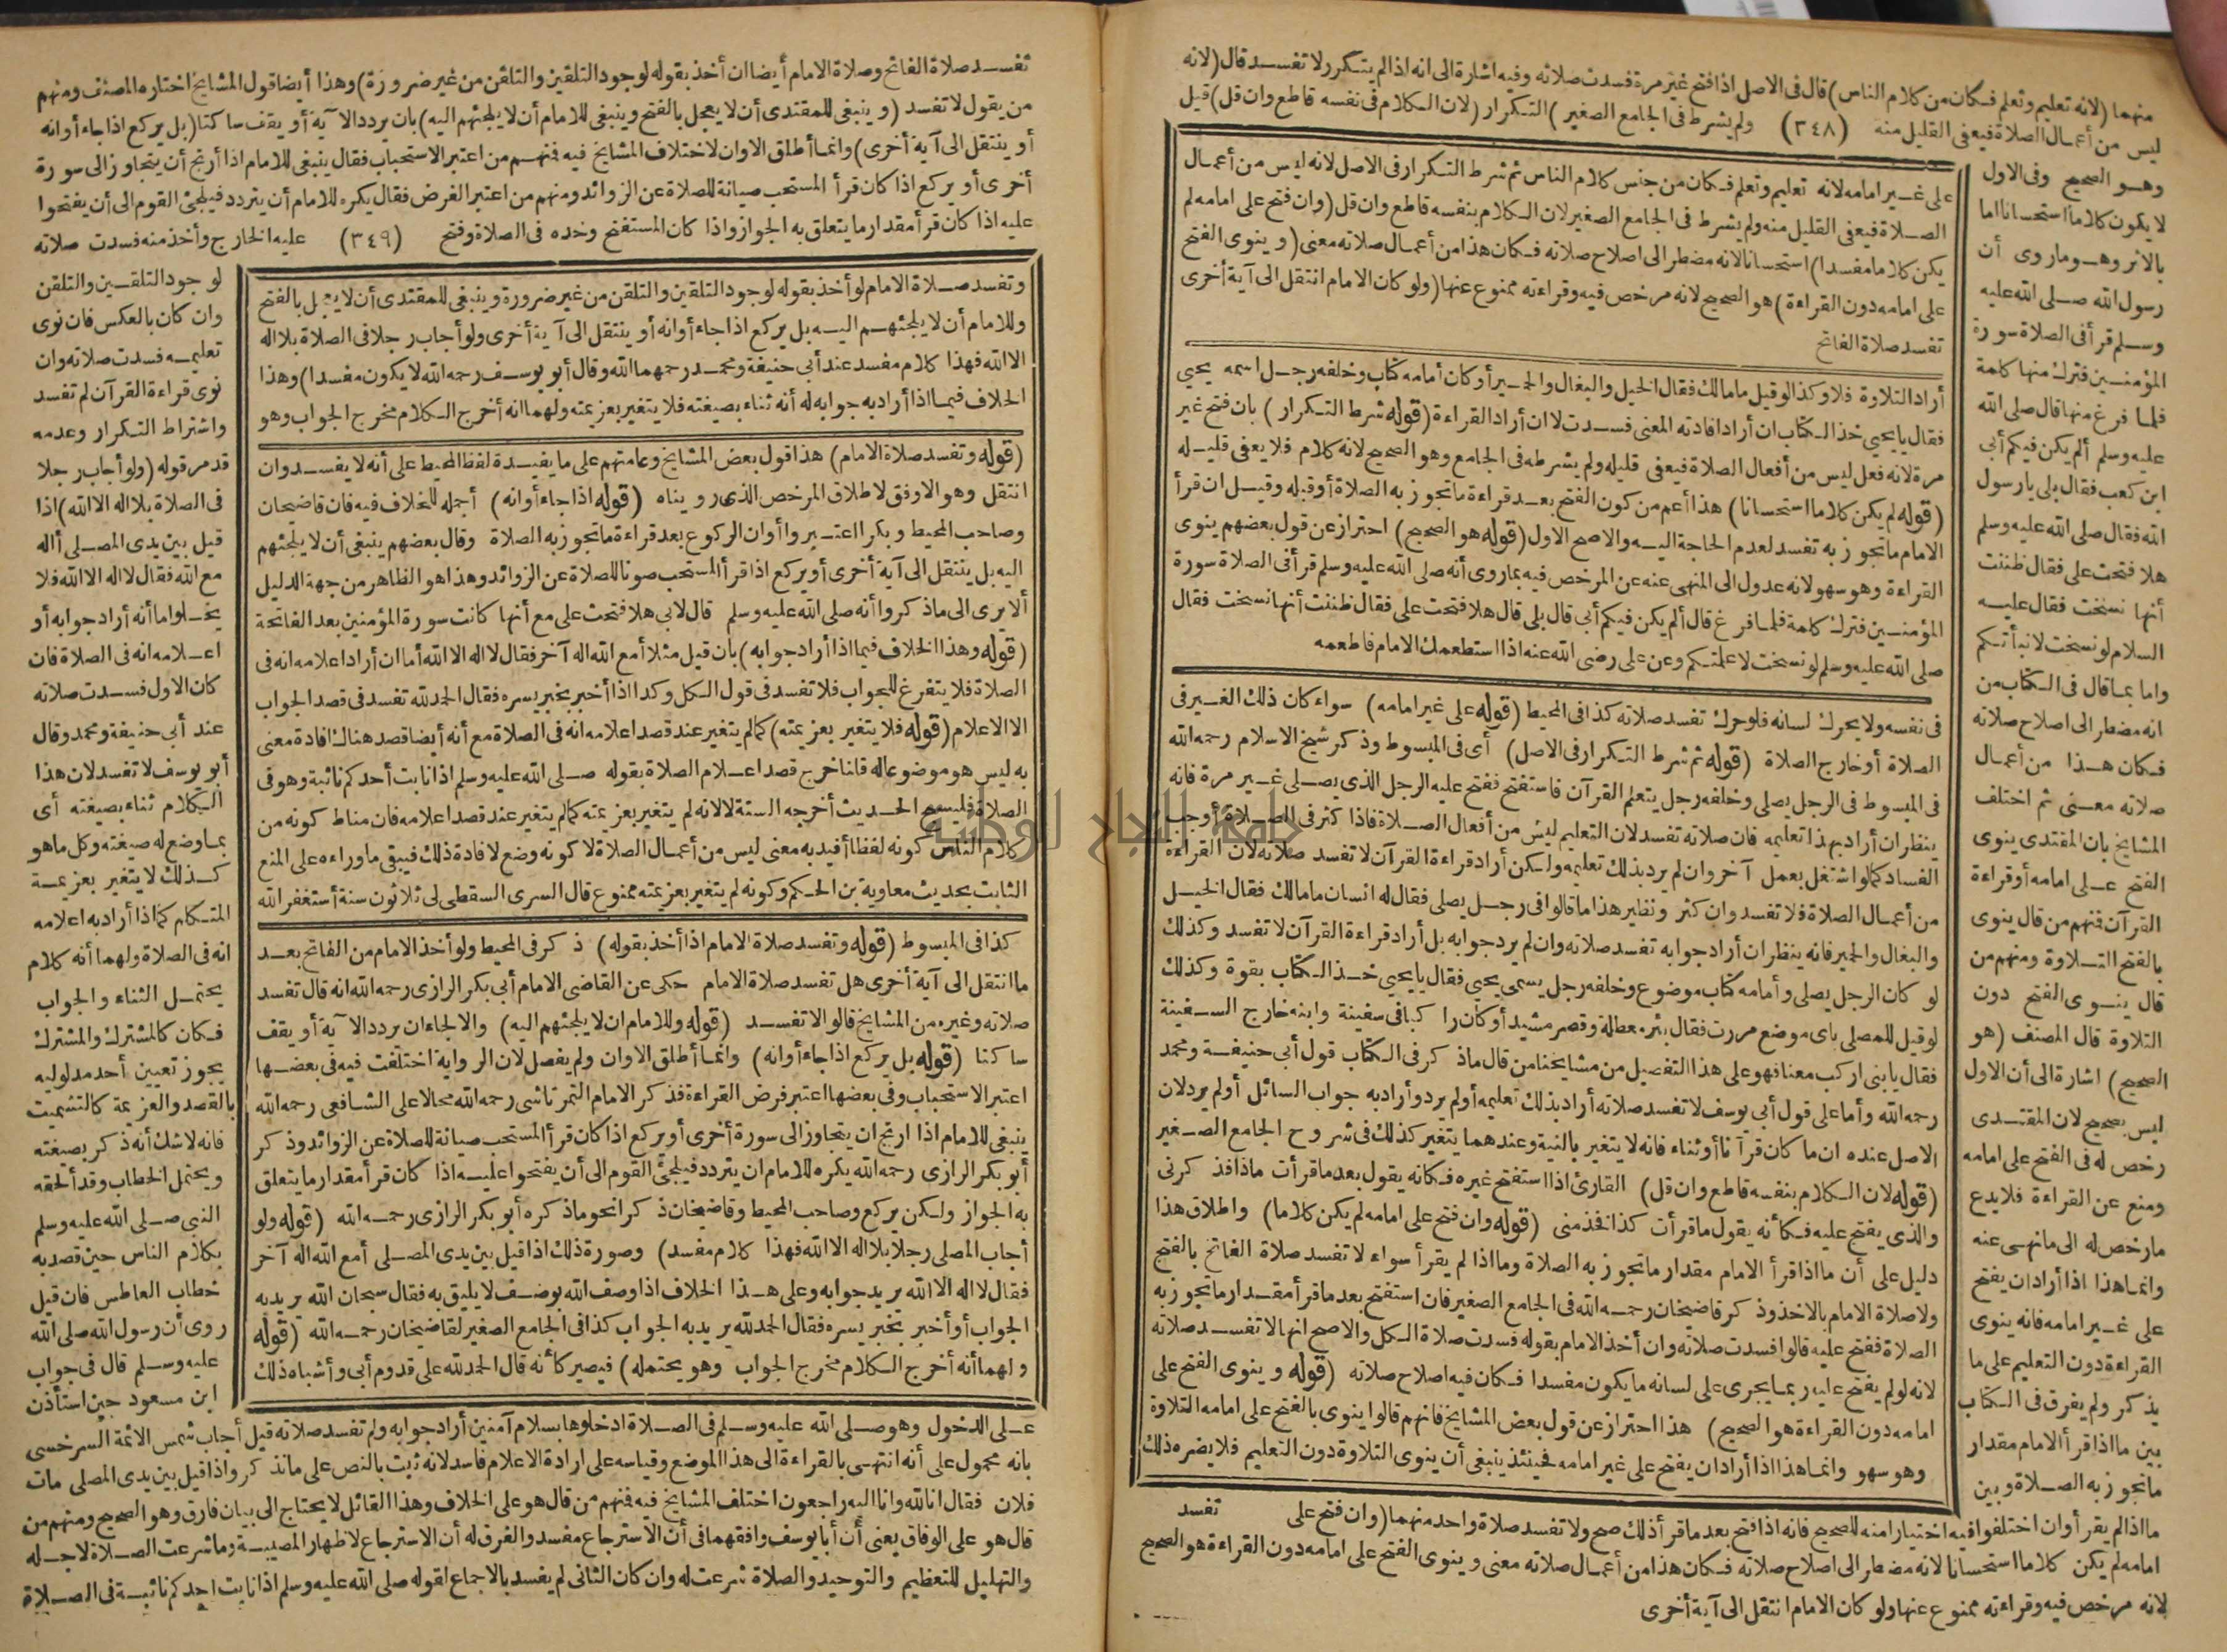 منهما (لانه تعليم وتعلم فكان من كلام الناس) قال فى الاصل اذا فتح غير مرة فسدت صلاته وفيه اشارة الى انه اذا لم يتكرر لا تفسد قال (لانه
ليس من أعمال الصلاة فيعفى القليل منه (٣٤٨) ولم يشرط فى الجامع الصغير) التكرار (لان الكلام فى نفسه قاطع وان قل) قيل
وهو الصحيح وفى الاول
لا يكون كلاما استحسانا اما
بالاثر وهو ما روى أن
رسول الله صلى الله عليه
وسلم قرأ فى الصلاة سورة
المؤمنين فترك منها كلمة
فلما فرغ منها قال صلى الله
عليه وسلم ألم يكن فيكم أبى
ابن كعب فقال بلى يا رسول
الله فقال صلى الله عليه وسلم
هلا فتحت على فقال ظننت
أنها نسخت فقال عليه
السلام لو نسخت لانبأتكم
واما بما قال فى الكتاب من
انه مضطر الى اصلاح صلاته
فكان هذا من أعمال
صلاته معنى ثم اختلف
المشايخ بان المقتدى ينوى
الفتح على امامه أو قراءة
القرآن فمنهم من قال ينوى
بالفتح التلاوة ومنهم من
قال ينوى الفتح دون
التلاوة قال المصنف (هو
الصحيح) اشارة الى أن الاول
ليس بصحيح لان المقتدى
رخص له فى الفتح على امامه
ومنع عن القراءة فلا يدع
ما رخص له الى ما نهى عنه
وانما هذا اذا أراد ان يفتح
على غير امامه فانه ينوى
القراءة دون التعليم على ما
يذكر ولم يفرق فى الكتاب
بين ما اذا قرأ الامام مقدار
ما تجوز به الصلاة وبين
على غير امامه لانه تعليم وتعلم فكان من جنس كلام الناس ثم شرط التكرار فى الاصل لانه ليس من أعمال
الصلاة فيعفى القليل منه ولم يشرط فى الجامع الصغير لان الكلام بنفسه قاطع وان قل (وان فتح على امامه لم
يكن كلاما مفسدا) استحسانا لانه مضطر الى اصلاح صلاته فكان هذا من أعمال صلاته معنى (وينوى الفتح
على امامه دون القراءة) هو الصحيح لانه مرخص فيه وقراءته ممنوع عنها (ولو كان الامام انتقل الى آية أخرى
تفسد صلاة الفاتح
أراد التلاوة فلا وكذا لو قيل ما مالك فقال الخيل والبغال والحمير أو كان أمامه كتاب وخلفه رجل اسمه يحيى
فقال يا يحيى خذ الكتاب ان أراد افادته المعنى فسدت لا ان أراد القراءة (قوله شرط التكرار) بان فتح غير
مرة لانه فعل ليس من أفعال الصلاة فيعفى قليله ولم يشرطه فى الجامع وهو الصحيح لانه كلام فلا يعفى قليله
(قوله لم يكن كلاما استحسانا) هذا أعم من كون الفتح بعد قراءة ما تجوز به الصلاة أو قبله وقيل ان قرأ
الامام ما تجوز به تفسد لعدم الحاجة اليه والاصح الاول (قوله هو الصحيح) احتراز عن قول بعضهم ينوى
القراءة وهو سهو لانه عدول الى المنهى عنه عن المرخص فيه بما روى أنه صلى الله عليه وسلم قرأ فى الصلاة سورة
المؤمنين فترك كلمة فلما فرغ قال ألم يكن فيكم أبى قال بلى قال هلا فتحت على فقال ظننت أنها نسخت فقال
صلى الله عليه وسلم لو نسخت لاعلمتكم وعن على رضى الله عنه اذا استطعمك الامام فاطعمه
فى نفسه ولا يحرك لسانه فلو حرك تفسد صلاته كذا فى المحيط (قوله على غير امامه) سواء كان ذلك الغير فى
الصلاة أو خارج الصلاة (قوله ثم شرط التكرار فى الاصل) أى فى المبسوط وذكر شيخ الاسلام رحمه الله
فى المبسوط فى الرجل يصلى وخلفه رجل يتعلم القرآن فاستفتح ففتح عليه الرجل الذى يصلى غير مرة فانه
ينظر ان أراد بهذا تعليمه فان صلاته تفسد لان التعليم ليس من أفعال الصلاة فاذا كثر فى الصلاة أوجب
الفساد كما لو اشتغل بعمل آخر وان لم يرد بذلك تعليمه ولكن أراد قراءة القرآن لا تفسد صلاته لان القراءة
من أعمال الصلاة فلا تفسد وان كثر ونظير هذا ما قالوا فى رجل يصلى فقال له انسان ما مالك فقال الخيل
والبغال والحمير فانه ينظر ان أراد جوابه تفسد صلاته وان لم يرد جوابه بل أراد قراءة القرآن لا تفسد وكذلك
لو كان الرجل يصلى وأمامه كتاب موضوع وخلفه رجل يسمى يحيى فقال يا يحيى خذ الكتاب بقوة وكذلك
لو قيل للمصلى باى موضع مررت فقال بئر معطلة وقصر مشيد أو كان راكبا فى سفينة وابنه خارج السفينة
فقال يا بنى اركب معنا فهو على هذا التفصيل من مشايخنا من قال ما ذكر فى الكتاب قول أبى حنيفة ومحمد
رحمه الله وأما على قول أبى يوسف لا تفسد صلاته أراد بذلك تعليمه أو لم يرد وأراد به جواب السائل أو لم يرد لان
الاصل عنده ان ما كان قرآنا أو ثناء فانه لا يتغير بالنية وعندهما يتغير كذلك فى شروح الجامع الصغير
(قوله لان الكلام بنفسه قاطع وان قل) القارئ اذا استفتح غيره فكانه يقول بعد ما قرأت ماذا فذكرنى
والذى يفتح عليه فكأنه يقول ما قرأت كذا فخذ منى (قوله وان فتح على امامه لم يكن كلاما) واطلاق هذا
دليل على أن ما اذا قرأ الامام مقدار ما تجوز به الصلاة وما اذا لم يقرأ سواء لا تفسد صلاة الفاتح بالفتح
ولا صلاة الامام بالاخذ وذكر قاضيخان رحمه الله فى الجامع الصغير فان استفتح بعد ما قرأ مقدار ما تجوز به
الصلاة ففتح عليه قالوا فسدت صلاته وان أخذ الامام بقوله فسدت صلاة الكل والاصح انها لا تفسد صلاته
لانه لو لم يفتح عليه ربما يجرى على لسانه ما يكون مفسدا فكان فيه اصلاح صلاته (قوله وينوى الفتح على
امامه دون القراءة هو الصحيح) هذا احتراز عن قول بعض المشايخ فانهم قالوا ينوى بالفتح على امامه التلاوة
وهو سهو وانما هذا اذا أراد ان يفتح على غير امامه فحينئذ ينبغى أن ينوى التلاوة دون التعليم فلا يضره ذلك
ما اذا لم يقرأ وان اختلفوا فيه اختيارا منه للصحيح فانه اذا فتح بعد ما قرأ ذلك صح ولا تفسد صلاة واحد منهما (وان فتح على
تفسد
امامه لم يكن كلاما استحسانا لانه مضطر الى اصلاح صلاته فكان هذا من أعمال صلاته معنى وينوى الفتح على امامه دون القراءة هو الصحيح
لانه مرخص فيه وقراءته ممنوع عنها ولو كان الامام انتقل الى آية أخرى
تفسد صلاة الفاتح وصلاة الامام أيضا ان أخذ بقوله لوجود التلقين والتلقن من غير ضرورة) وهذا أيضا قول المشايخ اختاره المصنف ومنهم
من يقول لا تفسد (وينبغى للمقتدى أن لا يعجل بالفتح وينبغى للامام أن لا يلجئهم اليه) بان يردد الآية أو يقف ساكتا (بل يركع اذا جاء أوانه
أو ينتقل الى آية أخرى) وانما أطلق الاوان لاختلاف المشايخ فيه فمنهم من اعتبر الاستحباب فقال ينبغى للامام اذا أرتج أن يتجاوز الى سورة
أخرى أو يركع اذا كان قرأ المستحب صيانة للصلاة عن الزوائد ومنهم من اعتبر الفرض فقال يكره للامام أن يتردد فيلجئ القوم الى أن يفتحوا
عليه اذا كان قرأ مقدار ما يتعلق به الجواز واذا كان المستفتح وحده فى الصلاة وفتح (٣٤٩) عليه الخارج وأخذ منه فسدت صلاته
وتفسد صلاة الامام لو أخذ بقوله لوجود التلقين والتلقن من غير ضرورة وينبغى للمقتدى أن لا يعجل بالفتح
وللامام أن لا يلجئهم اليه بل يركع اذا جاء أوانه أو ينتقل الى آية أخرى ولو أجاب رجلا فى الصلاة بلا اله
الا الله فهذا كلام مفسد عند أبى حنيفة ومحمد رحمهما الله وقال أبو يوسف رحمه الله لا يكون مفسدا) وهذا
الخلاف فيما اذا أراد به جوابه له أنه ثناء بصيغته فلا يتغير بعزيمته ولهما انه أخرج الكلام مخرج الجواب وهو
(قوله وتفسد صلاة الامام) هذا قول بعض المشايخ وعامتهم على ما يفيده لفظ المحيط على أنه لا يفسد وان
انتقل وهو الاوفق لاطلاق المرخص الذى رويناه (قوله اذا جاء أوانه) أجمله للخلاف فيه فان قاضيخان
وصاحب المحيط وبكرا اعتبروا أوان الركوع بعد قراءة ما تجوز به الصلاة وقال بعضهم ينبغى أن لا يلجئهم
اليه بل ينتقل الى آية أخرى أو يركع اذا قرأ المستحب صونا للصلاة عن الزوائد وهذا هو الظاهر من جهة الدليل
ألا يرى الى ما ذكروا أنه صلى الله عليه وسلم قال لابى هلا فتحت على مع أنها كانت سورة المؤمنين بعد الفاتحة
(قوله وهذا الخلاف فيما اذا أراد جوابه) بان قيل مثلا أمع الله اله آخر فقال لا اله الا الله أما ان أراد اعلامه انه فى
الصلاة فلا يتفرغ للجواب فلا تفسد فى قول الكل وكذا اذا أخبر بخبر يسره فقال الحمد لله تفسد فى قصد الجواب
الا الاعلام (قوله فلا يتغير بعزيمته) كما لم يتغير عند قصد اعلامه انه فى الصلاة مع أنه أيضا قصد هناك افادة معنى
به ليس هو موضوعا له قلنا خرج قصد اعلام الصلاة بقوله صلى الله عليه وسلم اذا نابت أحدكم نائبة وهو فى
الصلاة فليسبح الحديث أخرجه الستة لا لانه لم يتغير بعزيمته كما لم يتغير عند قصد اعلامه فان مناط كونه من
كلام الناس كونه لفظا أفيد به معنى ليس من أعمال الصلاة لا كونه وضع لافادة ذلك فيبقى ما وراءه على المنع
الثابت بحديث معاوية بن الحكم وكونه لم يتغير بعزيمته ممنوع قال السرى السقطى لى ثلاثون سنة أستغفر الله
كذا فى المبسوط (قوله وتفسد صلاة الامام اذا أخذ بقوله) ذكر فى المحيط ولو أخذ الامام من الفاتح بعد
ما انتقل الى آية أخرى هل تفسد صلاة الامام حكى عن القاضى الامام أبى بكر الرازى رحمه الله انه قال تفسد
صلاته وغيره من المشايخ قالوا لا تفسد (قوله وللامام ان لا يلجئهم اليه) والالجاء ان يردد الآية أو يقف
ساكتا (قوله بل يركع اذا جاء أوانه) وانما أطلق الاوان ولم يفصل لان الرواية اختلفت فيه فى بعضها
اعتبر الاستحباب وفى بعضها اعتبر فرض القراءة فذكر الامام التمرتاشى رحمه الله محالا على الشافعى رحمه الله
ينبغى للامام اذا ارتج ان يتجاوز الى سورة أخرى أو يركع اذا كان قرأ المستحب صيانة للصلاة عن الزوائد وذكر
أبو بكر الرازى رحمه الله يكره للامام ان يتردد فيلجئ القوم الى أن يفتحوا عليه اذا كان قرأ مقدار ما يتعلق
به الجواز ولكن يركع وصاحب المحيط وقاضيخان ذكرا نحو ما ذكره أبو بكر الرازى رحمه الله (قوله ولو
أجاب المصلى رجلا بلا اله الا الله فهذا كلام مفسد) وصورة ذلك اذا قيل بين يدى المصلى أمع الله اله آخر
فقال لا اله الا الله يريد جوابه وعلى هذا الخلاف اذا وصف الله بوصف لا يليق به فقال سبحان الله يريد به
الجواب أو أخبر بخبر يسره فقال الحمد لله يريد به الجواب كذا فى الجامع الصغير لقاضيخان رحمه الله (قوله
ولهما أنه أخرج الكلام مخرج الجواب وهو يحتمله) فيصير كأنه قال الحمد لله على قدوم أبى وأشباه ذلك
لوجود التلقين والتلقن
وان كان بالعكس فان نوى
تعليمه فسدت صلاته وان
نوى قراءة القرآن لم تفسد
واشتراط التكرار وعدمه
قد مر قوله (ولو أجاب رجلا
فى الصلاة بلا اله الا الله) اذا
قيل بين يدى المصلى أاله
مع الله فقال لا اله الا الله فلا
يخلو اما أنه أراد جوابه أو
اعلامه انه فى الصلاة فان
كان الاول فسدت صلاته
عند أبى حنيفة ومحمد وقال
أبو يوسف لا تفسد لان هذا
الكلام ثناء بصيغته أى
بما وضع له صيغته وكل ما هو
كذلك لا يتغير بعزيمة
المتكلم كما اذا أراد به اعلامه
انه فى الصلاة ولهما أنه كلام
يحتمل الثناء والجواب
فكان كالمشترك والمشترك
يجوز تعيين أحد مدلوليه
بالقصد والعزيمة كالتشميت
فانه لا شك أنه ذكر بصيغته
ويحتمل الخطاب وقد ألحقه
النبى صلى الله عليه وسلم
بكلام الناس حين قصد به
خطاب العاطس فان قيل
روى أن رسول الله صلى الله
عليه وسلم قال فى جواب
ابن مسعود حين استأذن
على الدخول وهو صلى الله عليه وسلم فى الصلاة ادخلوها بسلام آمنين أراد جوابه ولم تفسد صلاته قيل أجاب شمس الائمة السرخسى
بانه محمول على أنه انتهى بالقراءة الى هذا الموضع وقياسه على ارادة الاعلام فاسد لانه ثبت بالنص على ما نذكر واذا قيل بين يدى المصلى مات
فلان فقال انا لله وانا اليه راجعون اختلف المشايخ فيه فمنهم من قال هو على الخلاف وهذا القائل لا يحتاج الى بيان فارق وهو الصحيح ومنهم من
قال هو على الوفاق يعنى أن أبا يوسف وافقهما فى أن الاسترجاع مفسد والفرق له أن الاسترجاع لاظهار المصيبة وما شرعت الصلاة لاجله
والتهليل للتعظيم والتوحيد والصلاة شرعت له وان كان الثانى لم يفسد بالاجماع لقوله صلى الله عليه وسلم اذا نابت احدكم نائبة فى الصلاة
جامعة النجاح الوطنية